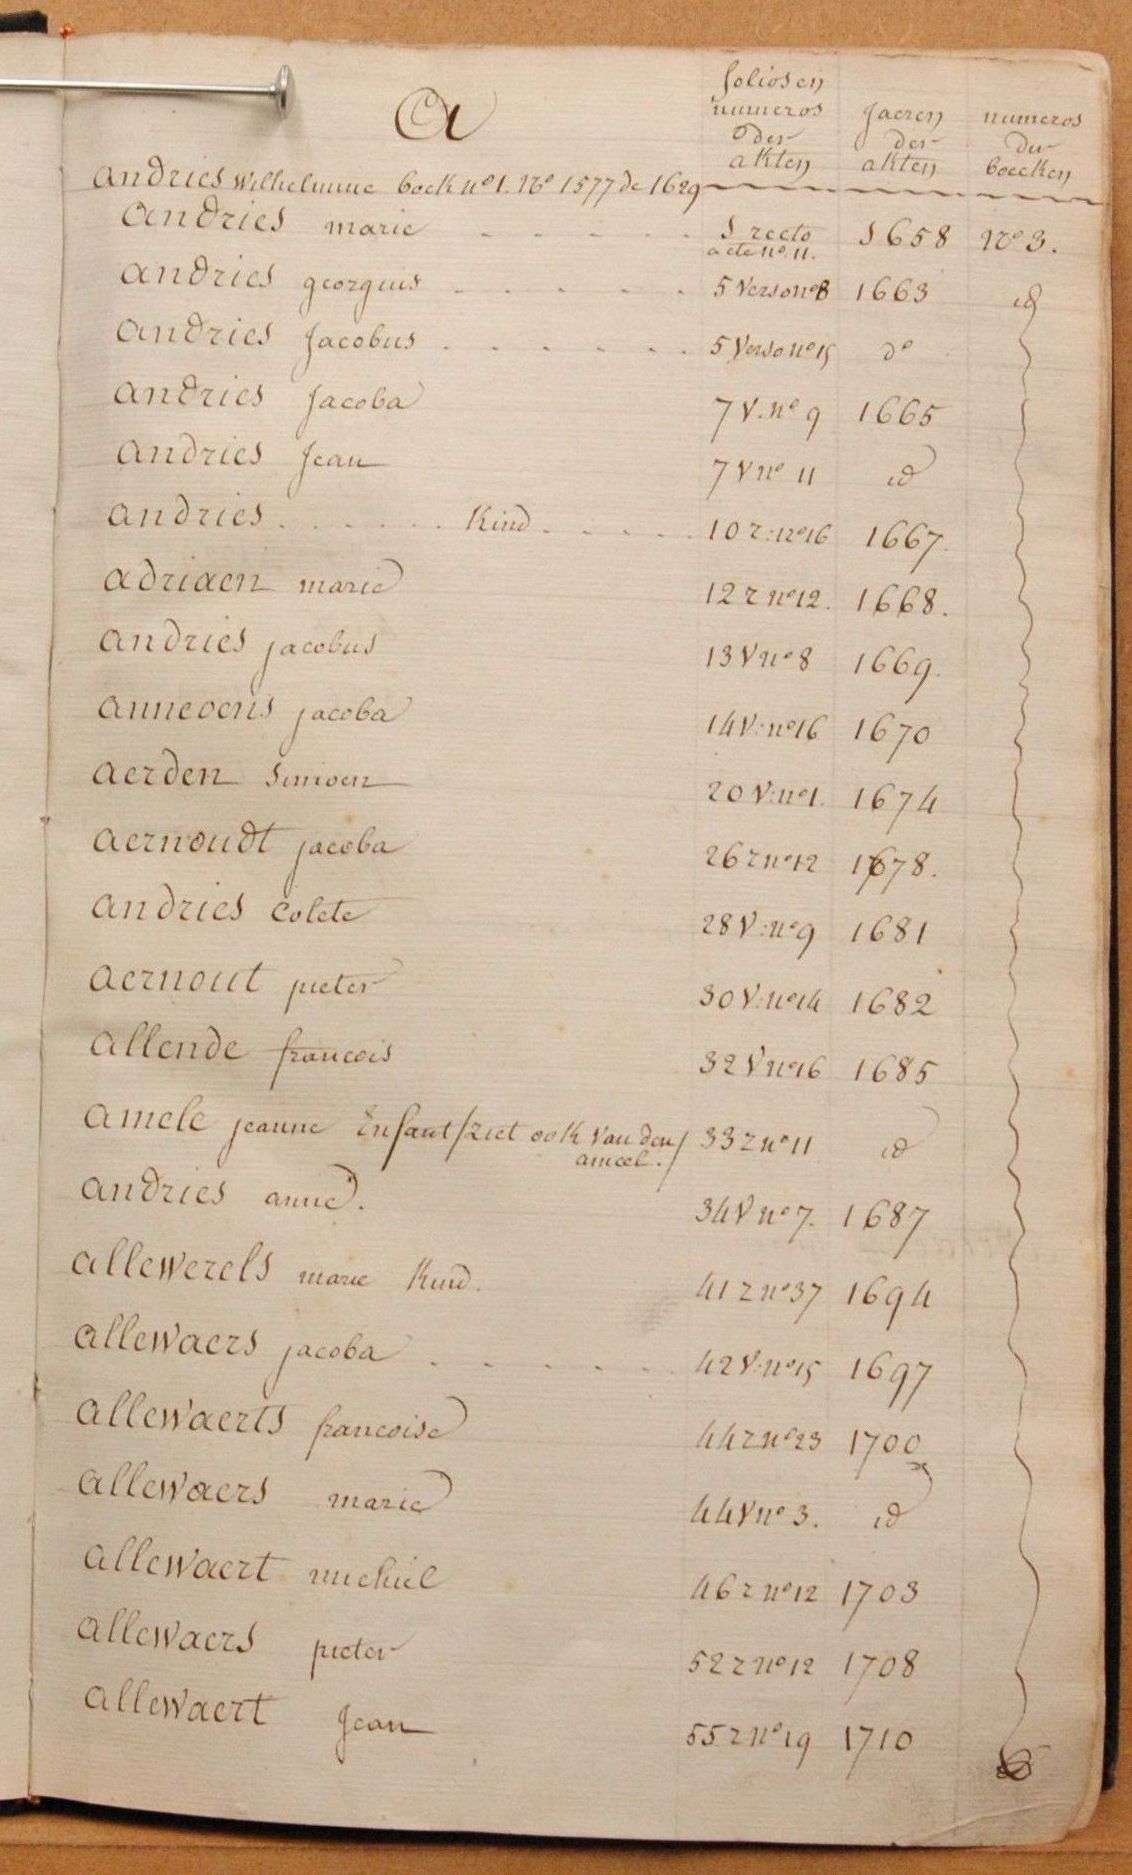 A
folios en numeros der akten
Jaeren der akten
numeros der boecken
andries Wilhelmine boek no 1. No 1577 de 1629
andries marie 1 recto acte no. 11. 1658 No 3.
andries georgius 5 Verso no 8 1663 id
andries Jacobus 5 Verso no 15 do
andries Jacoba 7 V. no 9 1665
andries Jean 7 V no 11 id
andries Kind 10 r: no 16 1667.
adriaen marie 12 r no 12. 1668.
andries jacobus 13 V no 8 1669.
anneoens jacoba 14 V: no 16 1670
aerden Simoen 20 V: no 1. 1674
aernoudt jacoba 26 r no 12 1678.
andries Colete 28 V: no 9 1681
aernout pieter 30 V: no 14 1682
allende francois 32 V no 16 1685
amele jeanne Enfant /ziet ook Van den ameel./ 33 r no 11 id
andries anne. 34 V no 7. 1687
allewerels marie Kind. 41 r no 37 1694
allewaers jacoba 42 V: no 15 1697
allewaerts francoise 44 r no 23 1700
allewaers marie 44 V no 3. id
allewaert michiel 46 r no 12 1703
allewaers pieter 52 r no 12 1708
allewaert Jean 55 r no 19 1710